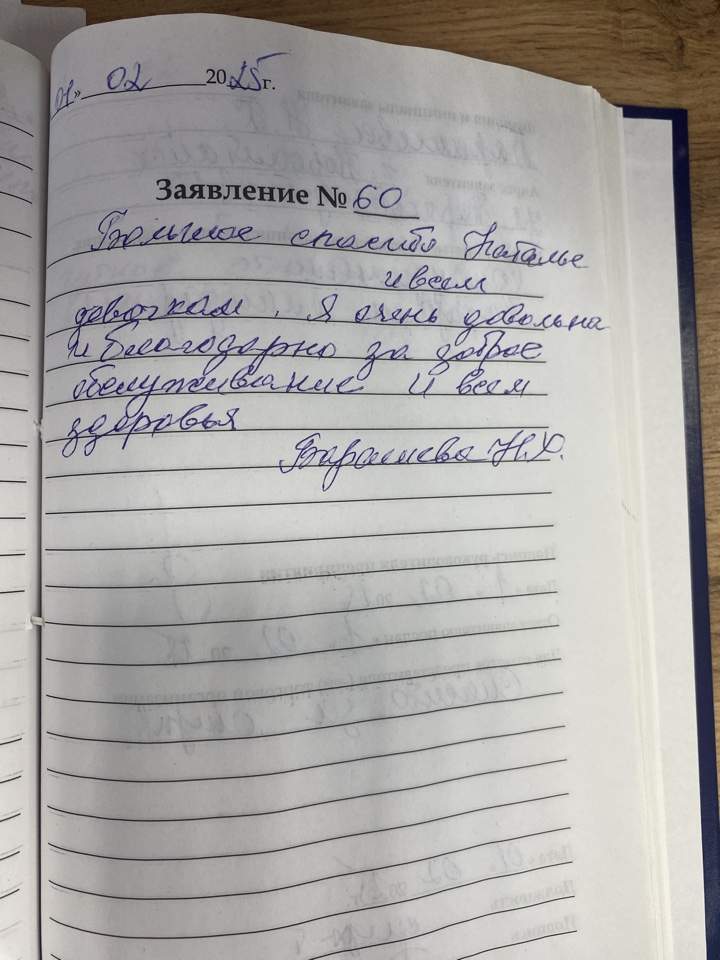 01» 02 2025г.
Заявление № 60
Большое спасибо Наталье
и всем
девочкам. Я очень довольна
и благодарна за доброе
обслуживание и всем
здоровья
Н.Х.